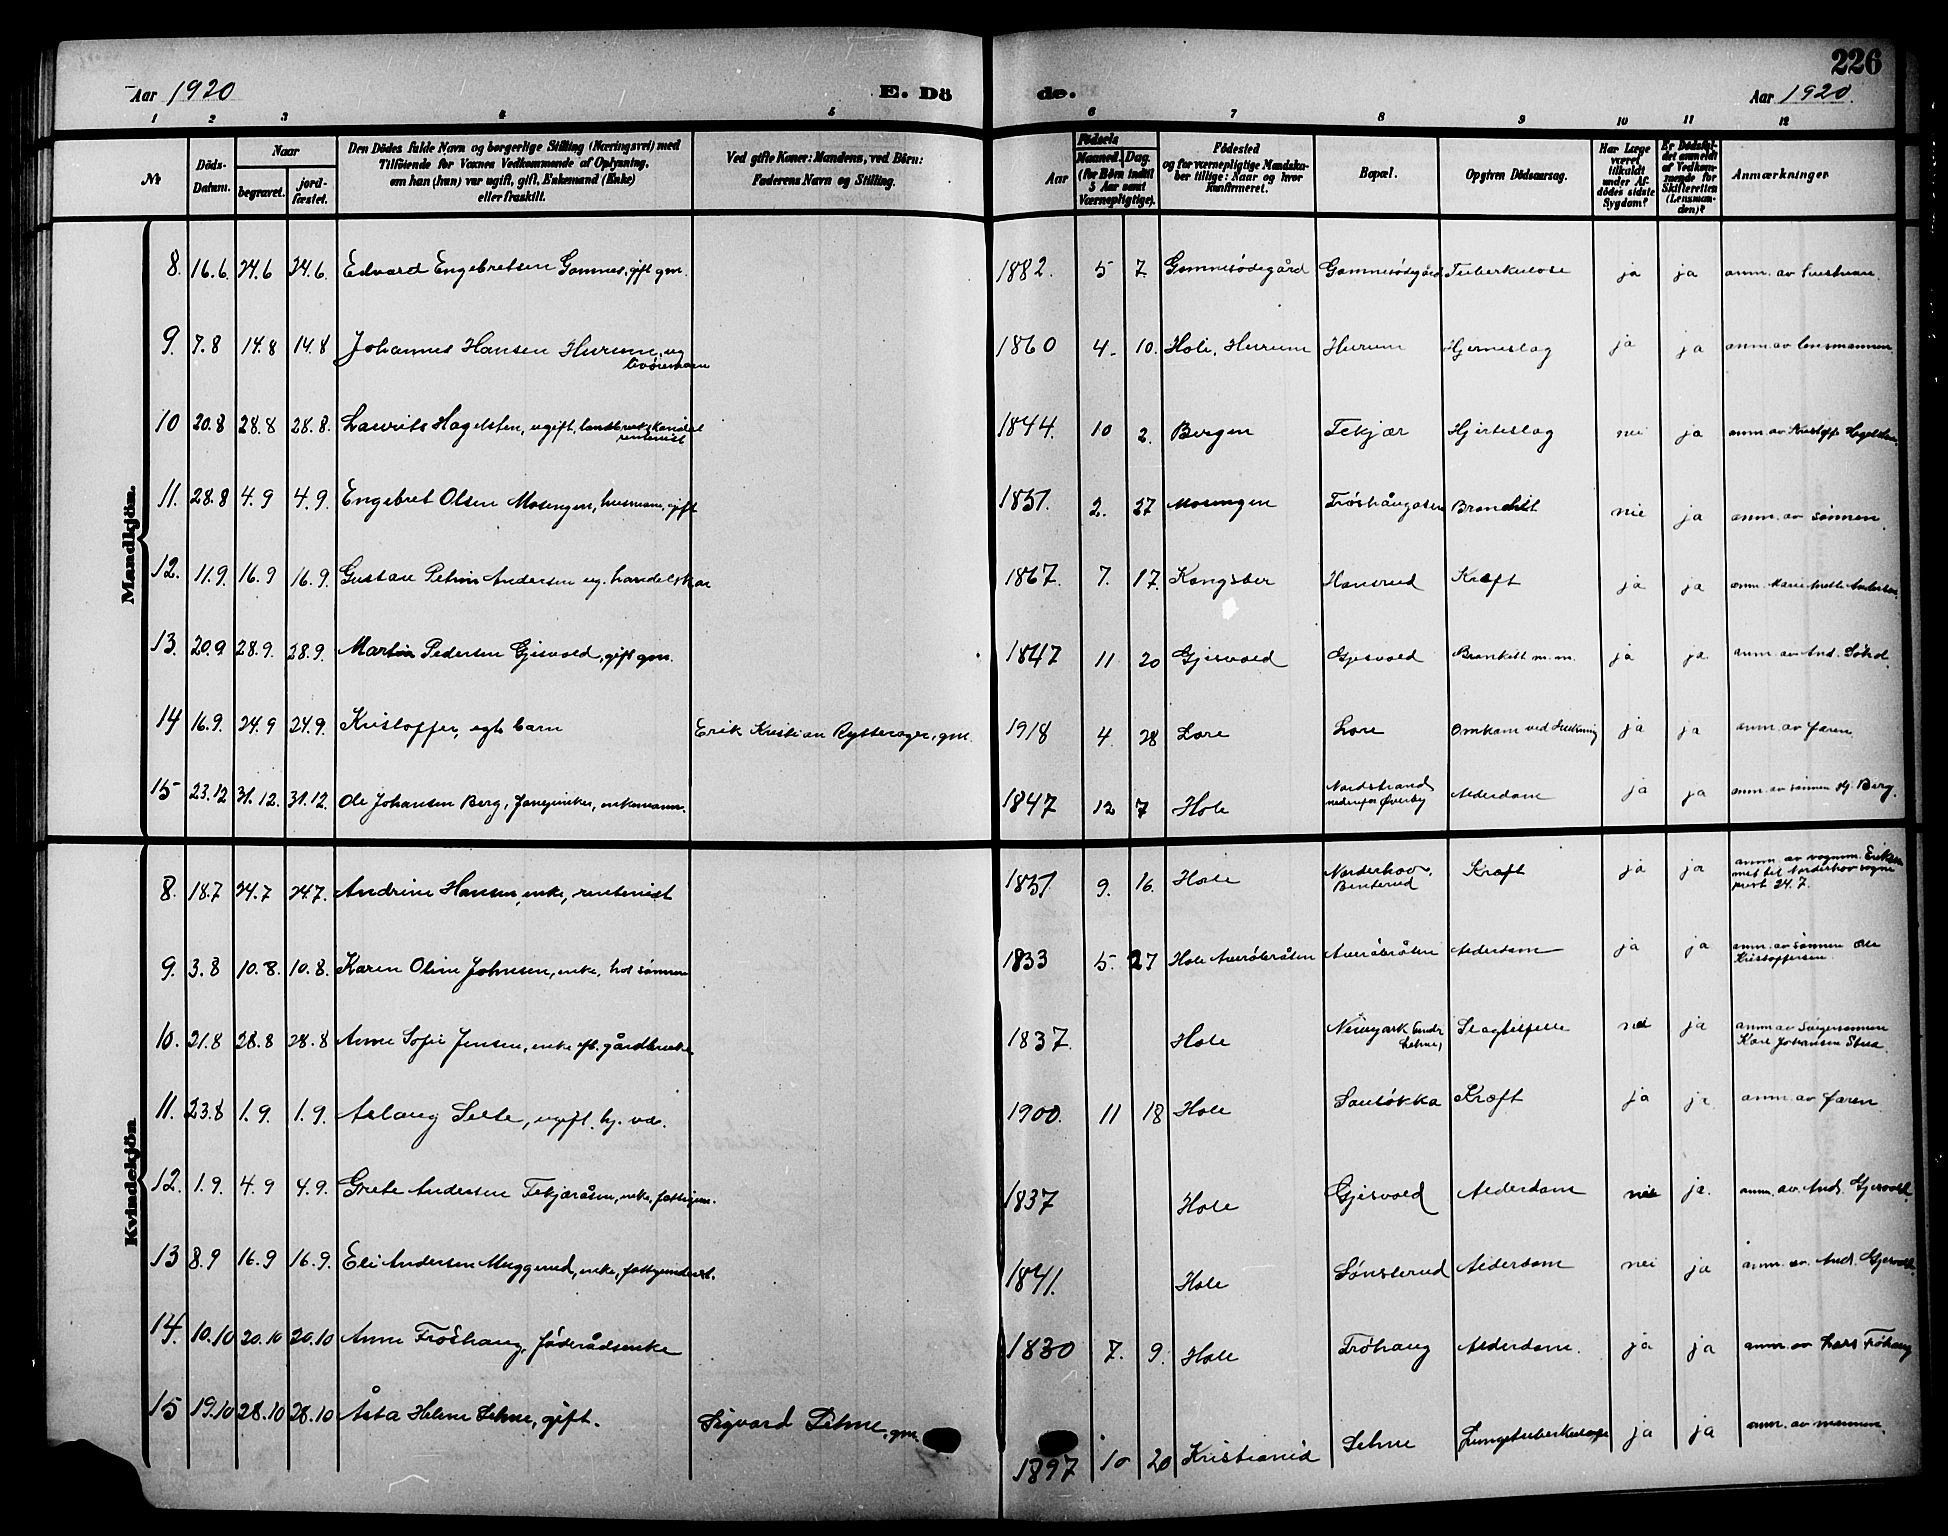 226
Aar 1920 E. Dö de. Aar 1920.
1 2 3 4 5 6 7 8 9 10 11 12
№ Döds-Datum. Naar begravet. jord-fæstet. Den Dödes fulde Navn og borgerlige Stilling (Næringsvei) med Tilföiende for Voxnes Vedkommende af Oplysning, om han (hun) var ugift, gift, Enkemand (Enke) eller fraskilt. Ved gifte Koner: Mandens, ved Börn: Faderens Navn og Stilling. Aar Födsels Maaned. Dag. (for Börn indtil 5 Aar samt Værnepligtige). Födested og for værnepligtige Mandskaber tillige: Naar og hvor konfirmeret. Bopæl. Opgiven Dödsaarsag. Har Læge været tilkaldt under Afdödes sidste Sygdom? Er Dödsfaldet anmeldt af Vedkommende for Skifteretten (Lensmanden)? Anmærkninger
Mandkjön.
8. 16.6. 24.6 24.6. Edvard Engebretsen Gomnes, gift gm. 1882. 5 7. Gomnesødegård Gomnesødegård Tuberkulose ja ja anm. av
9. 7.8 14.8 14.8 Johannes Hansen Hurum, ug 1860 4. 10. Hole, Hurum Hurum Hjerneslag ja ja anm. av lensmannen.
10 20.8 28.8 28.8. Laurits Hagelsten, ugift, landbrukskandidat rentenist 1844. 10 2. Bergen Tekjær Hjerteslag nei ja anm. av Kristoffe Hagelsten.
11. 28.8 4.9 4.9. Engebret Olsen Mosengen, husmann, gift 1851. 2. 27 Mosengen Frøshaugosen Bronchit nei ja anm. av sønnen.
12. 11.9. 16.9 16.9. Gustav Petrus Andersen ug. handelskar 1867. 7. 17. Kongsber Hønsrud Kræft ja ja anm. Marie Mette Andersen.
13. 20.9 28.9. 28.9. Martin Pedersen Gjesvold, gift gm. 1847 11 20 Gjesvold Gjesvold Bronkitt m.m. ja ja. anm. av And. Søhol.
14 16.9. 24.9 24.9. Kristoffer, egte barn Erik Kristian Rytterager, gm. 1918 4. 28 Lore Lore Omkom ved drukning ja ja anm. av faren.
15 23.12 31.12. 31.12. Ole Johansen Berg, enkemann. 1847 12 7 Hole Nordstrand nedenfor Øverby Alderdom ja ja anm. av sønnen Hj. Berg.
Kvindekjön
8. 18.7 24.7 24.7. Andrine Hansen, enke, rentenist 1851 9. 16. Hole Norderhov, Benterud Kræft ja ja anm. av vognm. Eriksen met til Norderhov sogneprest 24.7.
9. 3.8 10.8. 10.8. Karen Oline Johnsen, enke, hos sønnen 1833 5. 27 Hole Averøbråten Averøbråten Alderdom ja ja anm. av sønnen Ole Kristoffersen.
10. 21.8 28.8 28.8 Anne Sofie Jensen, enke eft. gårdbruker 1837. Hole Newyork under Lehne, Slagtilfelle nei ja anm. av svigersønnen Karl Johansen Stua.
11. 23.8 1.9. 1.9. Aslaug Selte, ugift hj. væ. 1900. 11 18 Hole Sandøkka Kræft ja ja anm. av faren
12. 1.9. 4.9 4.9. Grete Andersen Tekjæråsen, enke, fattigun. 1837 Hole Gjesvold Alderdom nei ja. anm. av And. Gjesvold.
13 8.9 16.9 16.9. Eli Andersen Muggerud, enke, fattigunderst. 1841. Hole Sønsterud Alderdom nei ja anm. av And. Gjesvold.
14. 10.10 20.10 20.10 Anne Frøshaug, føderådsenke 1830 7. 9. Hole Frøhaug Alderdom. ja ja anm. av Lars Frøhaug
15 19.10 28.10 28.10 Åsta Helene Lehne, gift. Sigvard Lehne, gm. 1897 10 20 Kristiania Lehne Lungetuberkulose ja ja anm. av mannen.